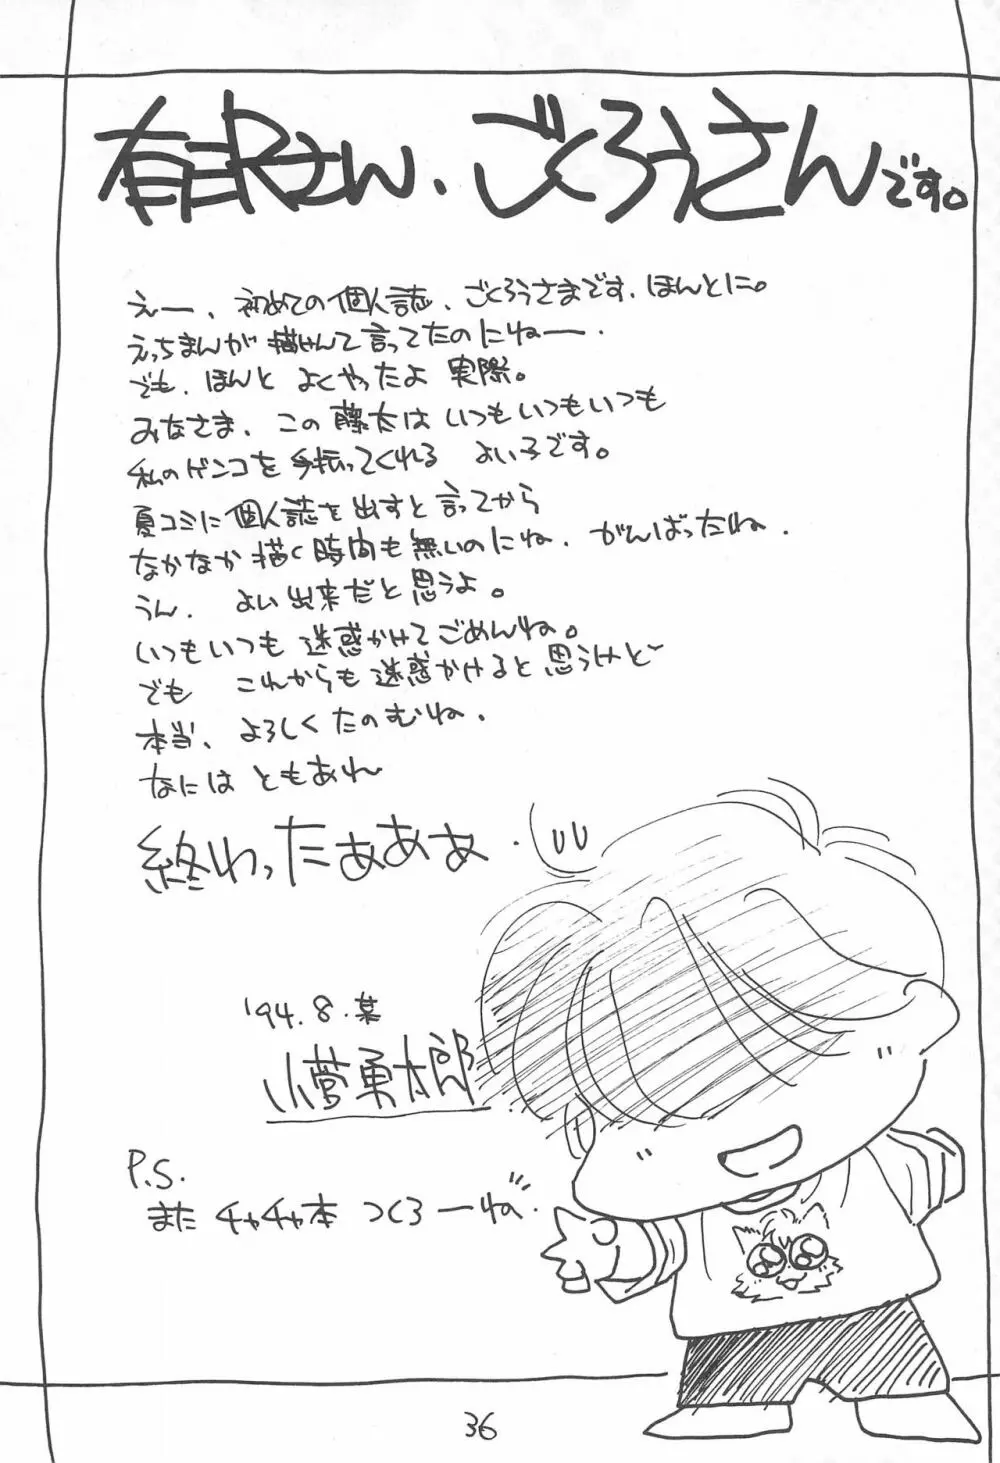 有沢さん、ごくろうさんです。
えー、初めての個人誌、ごくろうさまです、ほんとに。
えっちまんが描けんて言ってたのにねー、
でも、ほんと よくやったよ 実際。
みなさま、この 藤太は いつもいつもいつも
私のゲンコを手振ってくれる よい子です。
夏コミに個人誌を出すと言ってから
なかなか描く時間も無いのにね、がんばったね、
うん、よい出来だと思うよ。
いつもいつも迷惑かけてごめんね。
でも これからも迷惑かけると思うけど
本当、よろしくたのむね、
なにはともあれ
終わったぁあぁ、
'94.8.某
小菅勇太郎
P.S.
また チャチャ本 つくろーね、
36